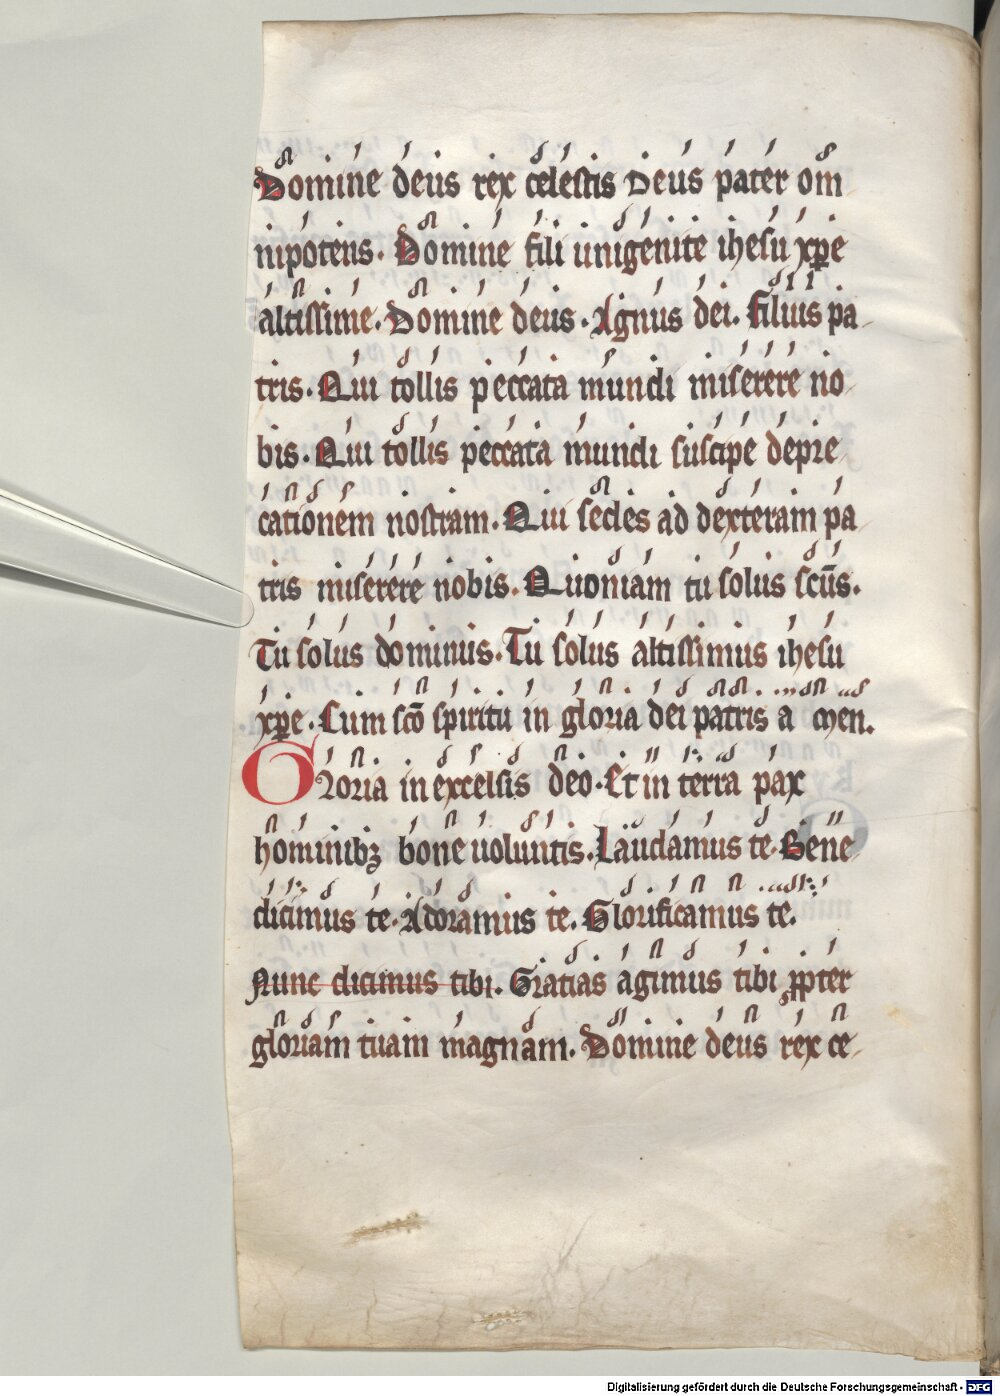 Domine deus rex celestis Deus pater om
nipotens. Domine fili unigenite ihesu xp̅e
altissime. Domine deus. Agnus dei. filius pa
tris. Qui tollis peccata mundi miserere no
bis. Qui tollis peccata mundi suscipe depre
cationem nostram. Qui sedes ad dexteram pa
tris miserere nobis. Quoniam tu solus sc̅us.
Tu solus dominus. Tu solus altissimus ihesu
xp̅e. Cum sc̅o spiritu in gloria dei patris a men.
Gloria in excelsis deo. Et in terra pax
hominibꝫ bone uoluntis. Laudamus te. Bene
dicimus te. Adoramus te. Glorificamus te.
Nunc dicimus tibi. Gratias agimus tibi ꝓpter
gloriam tuam magnam. Domine deus rex ce
Digitalisierung gefördert durch die Deutsche Forschungsgemeinschaft - DFG